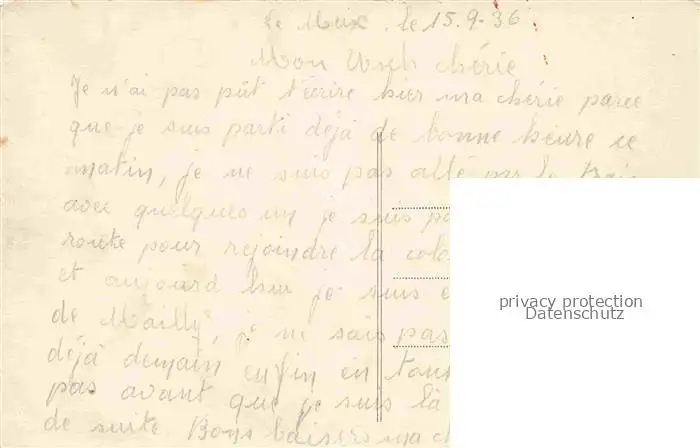 le Meix . le 15.9.36
Mon chérie
Je n'ai pas pût t'écrire hier ma chérie parce
que je suis parti déjà de bonne heure ce
matin, je ne suis pas allé par le
avec quelques un je suis
route pour rejoindre la
et aujourd hui je suis
de Mailly, je ne sais pas
déjà demain enfin en
pas avant que je suis la
de suite. Bons baisers ma
privacy protection
Datenschutz